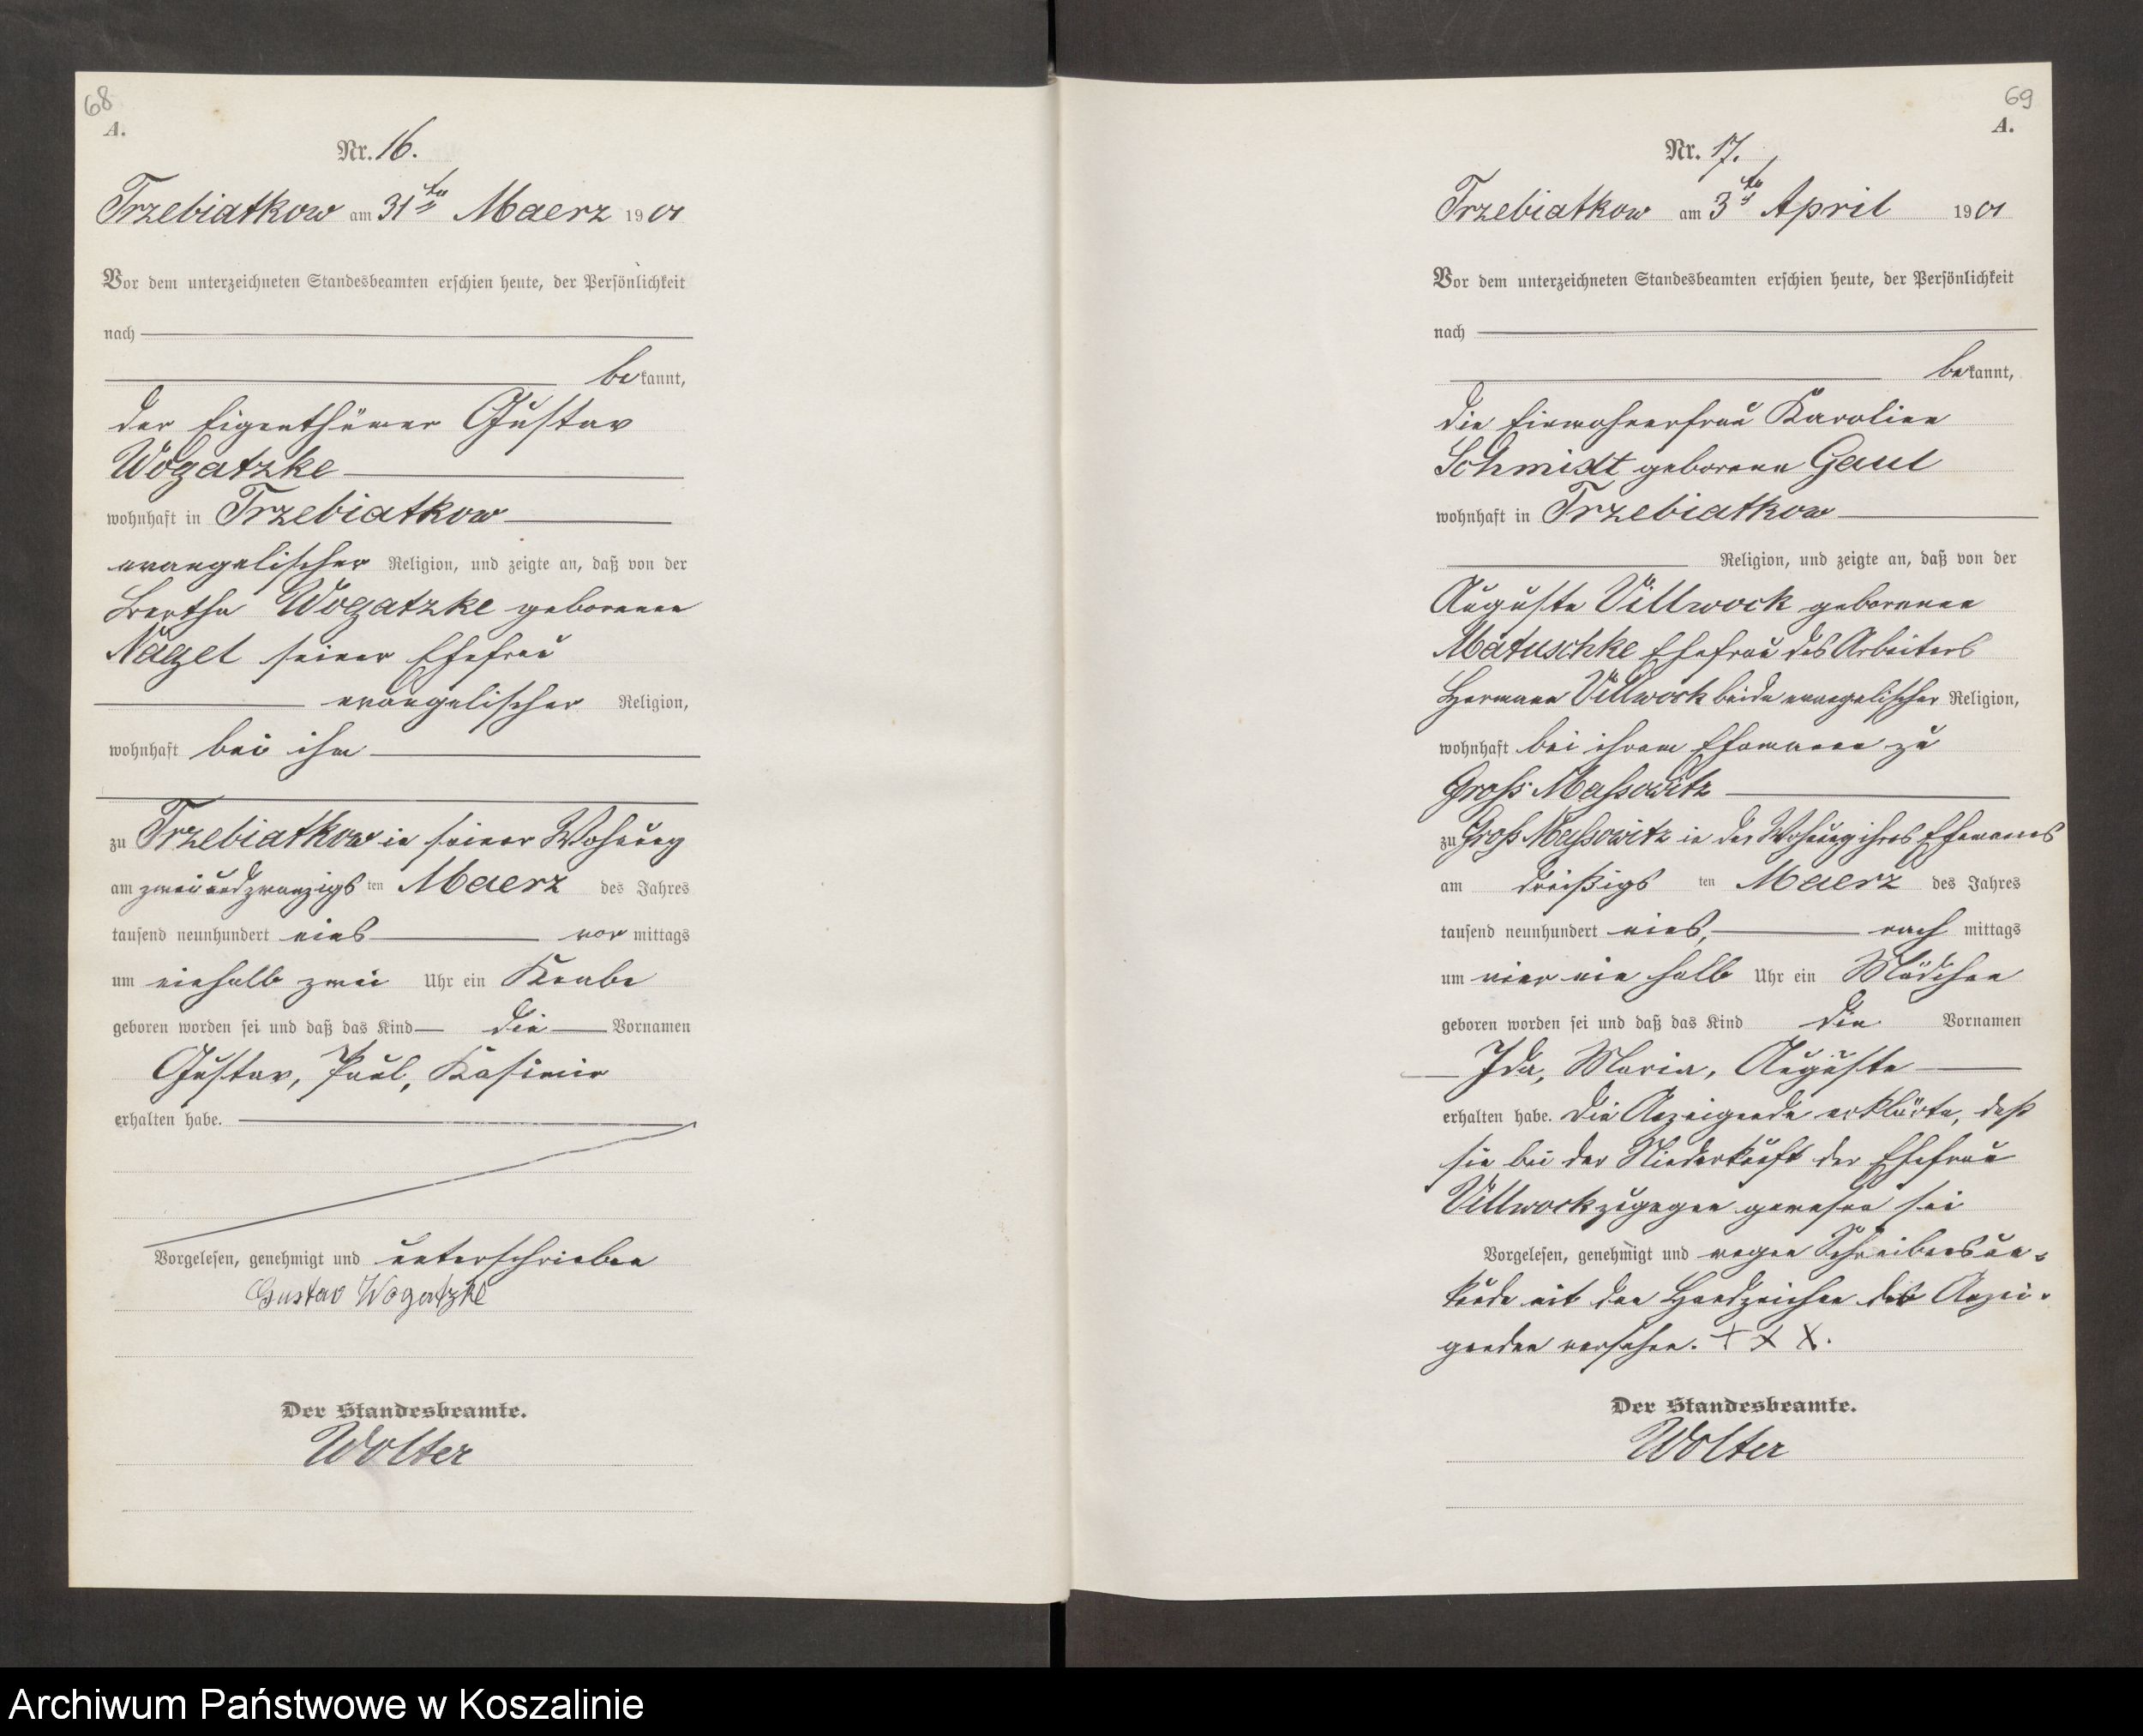 68
A.
Nr. 16.
Trzebiatkow am 31ten Maerz 1901
Vor dem unterzeichneten Standesbeamten erschien heute, der Persönlichkeit
nach
bekannt,
der Eigenthümer Gustav
Wogatzke
wohnhaft in Trzebiatkow
evangelischer Religion, und zeigte an, daß von der
Bertha Wogatzke geborenen
Nagel seiner Ehefrau
evangelischer Religion,
wohnhaft bei ihm
zu Trzebiatkow in seiner Wohnung
am zwei und zwanzigs ten Maerz des Jahres
tausend neunhundert eins vor mittags
um einhalb zwei Uhr ein Knabe
geboren worden sei und daß das Kind die Vornamen
Gustav, Paul, Kasimir
erhalten habe.
Vorgelesen, genehmigt und unterschrieben
Gustav Wogatzke
Der Standesbeamte.
Wolter
69
A.
Nr. 17.
Trzebiatkow am 3ten April 1901
Vor dem unterzeichneten Standesbeamten erschien heute, der Persönlichkeit
nach
bekannt,
die Einwohnerfrau Karoline
Schmidt geborene Gaul
wohnhaft in Trzebiatkow
Religion, und zeigte an, daß von der
Auguste Villwock geborenen
Matuschke Ehefrau des Arbeiters
Hermann Villwock beide evangelischer Religion,
wohnhaft bei ihrem Ehemanne zu
Gross Massowitz
zu Gross Massowitz in der Wohnung ihres Ehemannes
am dreißigs ten Maerz des Jahres
tausend neunhundert eins, nach mittags
um vier ein halb Uhr ein Mädchen
geboren worden sei und daß das Kind die Vornamen
Ida, Maria, Auguste
erhalten habe. Die Anzeigende erklärte, daß
sie bei der Niederkunft der Ehefrau
Villwock zugegen gewesen sei
Vorgelesen, genehmigt und wegen Schreibensun-
kunde mit den Handzeichen der Anzei-
genden versehen. + + X.
Der Standesbeamte.
Wolter
Archiwum Państwowe w Koszalinie